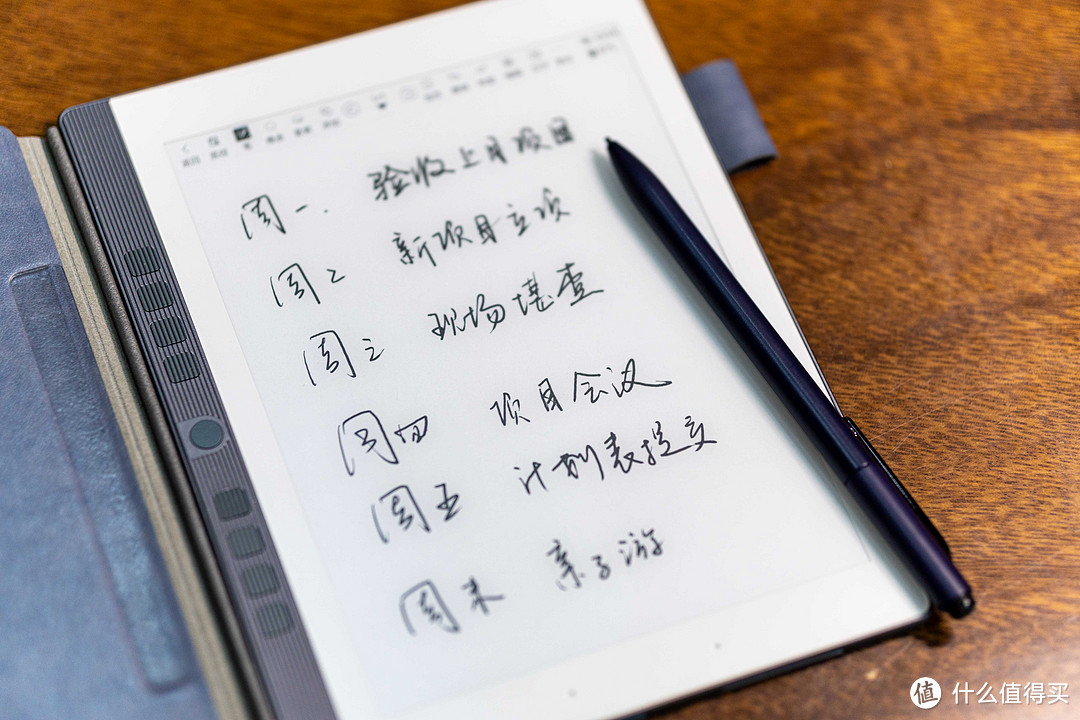 周一. 验收上月项目
周二 新项目立项
周三 现场堪查
周四 项目会议
周五 计划表提交
周末 亲子游
值 什么值得买